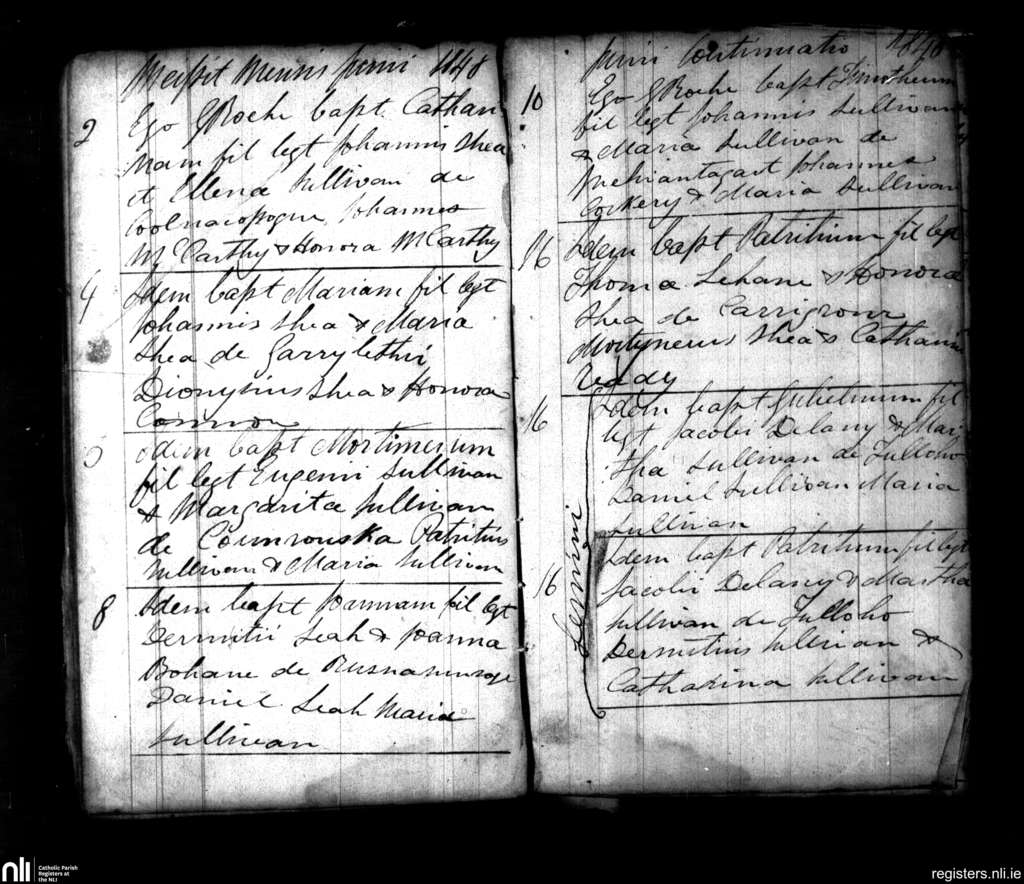 Mensis Junii 1848
2
Ego G Roche bapt Cathari
nam fil legt Johannis Shea
et Ellena Sullivan de
Coolnacopogue Johannes
McCarthy & Honora McCarthy
4
Idem bapt Mariam fil legt
Johannis Shea & Maria
Shea de Garrylethri
Dionysius Shea & Honora
Connor
5
Idem bapt Mortimerum
fil legt Eugenii Sullivan
& Margarita Sullivan
de Coumrouska Patritius
Sullivan & Maria Sullivan
8
Idem bapt Joannam fil legt
Dermitii Leah & Joanna
Bohane de
Daniel Leah Maria
Sullivan
Junii Continuatio 1848
10
Ego G Roche bapt Timotheum
fil legt Johannis Sullivan
& Maria Sullivan de
Johannes
Corkery & Maria Sullivan
16
Idem bapt Patritium fil legt
Thoma Lehane & Honora
Shea de Carrigrour
Shea & Catharin
Ready
16
Idem bapt Gulielmum fil
legt Jacobi Delany & Mar
tha Sullivan de Tulloho
Daniel Sullivan Maria
Sullivan
Gemini
16
Idem bapt Patritium fil legt
Jacobi Delany & Martha
Sullivan de Tulloho
Dermitius Sullivan &
Catharina Sullivan
nli
Catholic Parish
Registers at
the NLI
registers.nli.ie